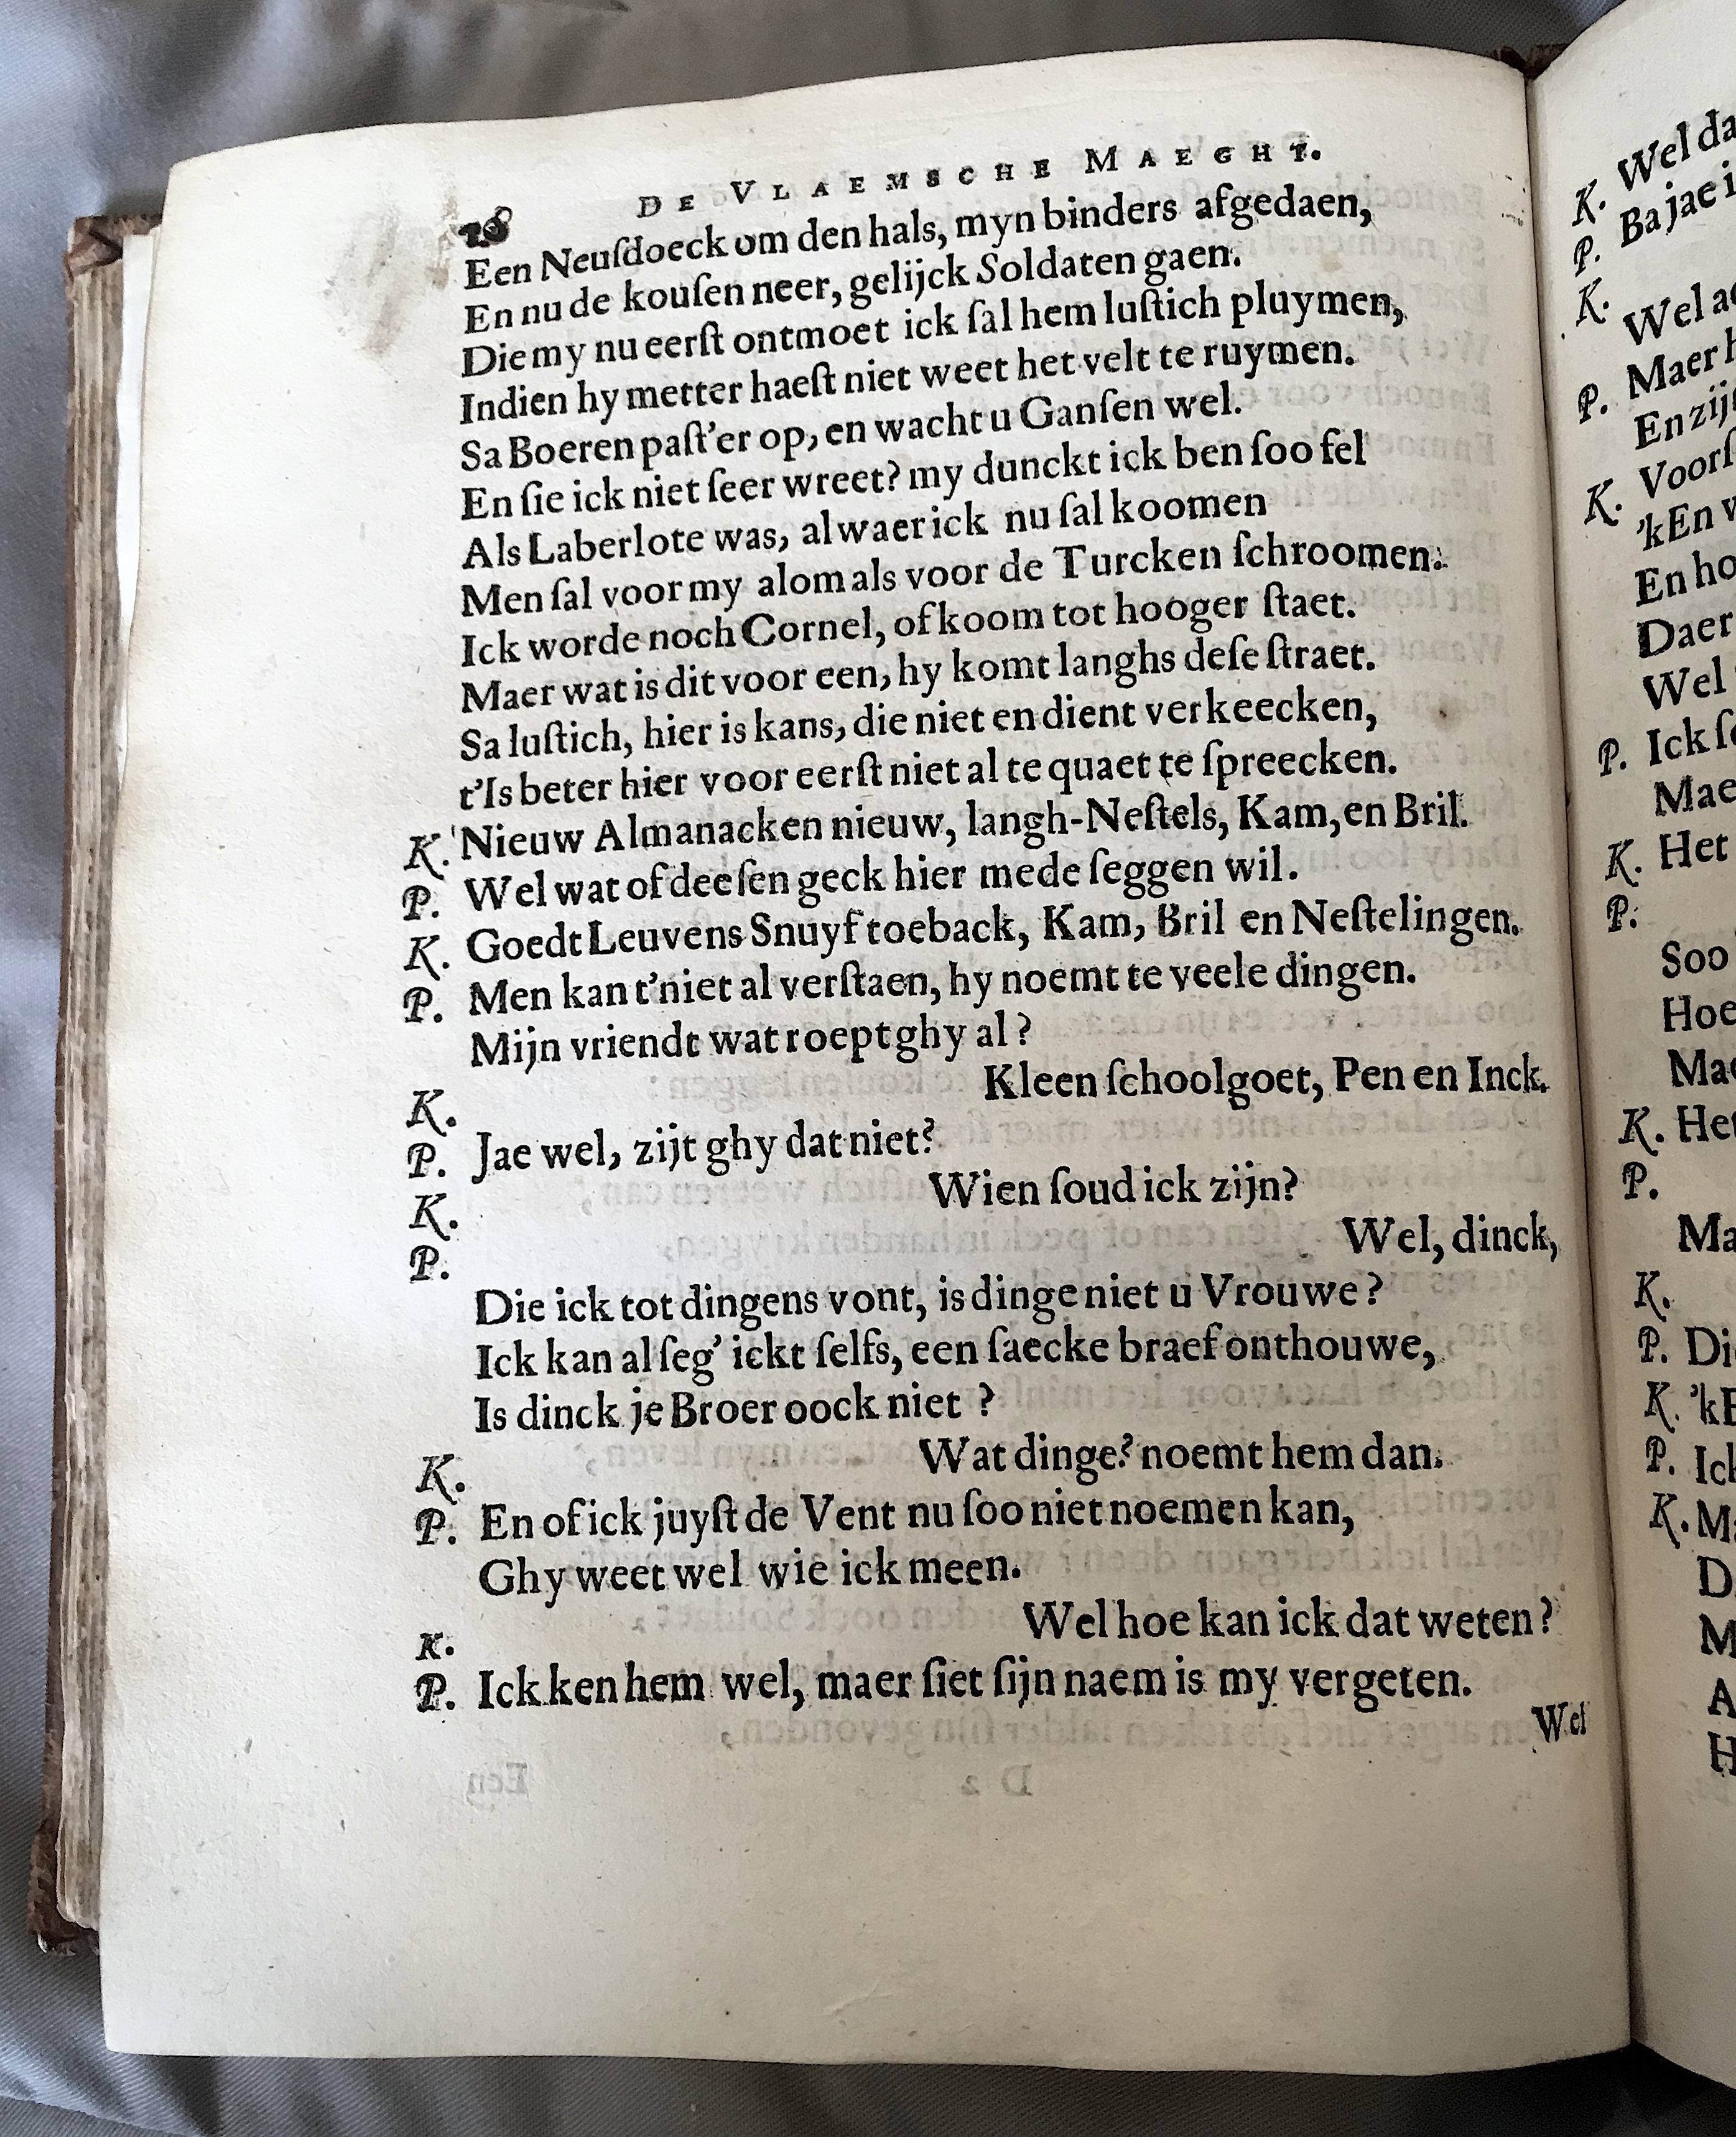 DE VLAEMSCHE MAEGHT.
28
Een Neuſdoeck om den hals, myn binders afgedaen,
En nu de kouſen neer, gelijck Soldaten gaen.
Die my nu eerſt ontmoet ick ſal hem luſtich pluymen,
Indien hy metter haeſt niet weet het velt te ruymen.
Sa Boeren paſt'er op, en wacht u Ganſen wel.
En ſie ick niet ſeer wreet? my dunckt ick ben ſoo fel
Als Laberlote was, alwaer ick nu ſal koomen
Men ſal voor my alom als voor de Turcken ſchroomen.
Ick worde noch Cornel, of koom tot hooger ſtaet.
Maer wat is dit voor een, hy komt langhs deſe ſtraet.
Sa luſtich, hier is kans, die niet en dient verkeecken,
t'Is beter hier voor eerſt niet al te quaet te ſpreecken.
K. 'Nieuw Almanack en nieuw, langh-Neſtels, Kam, en Bril.
P. Wel wat of deeſen geck hier mede ſeggen wil.
K. Goedt Leuvens Snuyf toeback, Kam, Bril en Neſtelingen.
P. Men kan t'niet al verſtaen, hy noemt te veele dingen.
Mijn vriendt wat roept ghy al?
K. Kleen ſchoolgoet, Pen en Inck.
P. Jae wel, zijt ghy dat niet?
K. Wien ſoud ick zijn?
P. Wel, dinck,
Die ick tot dingens vont, is dinge niet u Vrouwe?
Ick kan al ſeg' ickt ſelfs, een ſaecke braef onthouwe,
Is dinck je Broer oock niet?
K. Wat dinge? noemt hem dan.
P. En of ick juyſt de Vent nu ſoo niet noemen kan,
Ghy weet wel wie ick meen.
K. Wel hoe kan ick dat weten?
P. Ick ken hem wel, maer ſiet ſijn naem is my vergeten.
Wel
K. Wel
P. Ba jae
K.
Wel
P. Maer
En
K.
'kEn
En
Daer
Wel
P. Ick
K. Het
P.
Soo
Hoe
K.
P.
K.
P.
K.
P.
K.